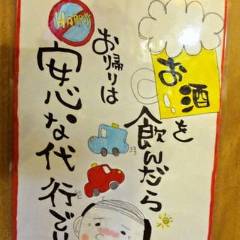 お酒を
飲んだら
お帰りは
安心な代行どう
HAPPY